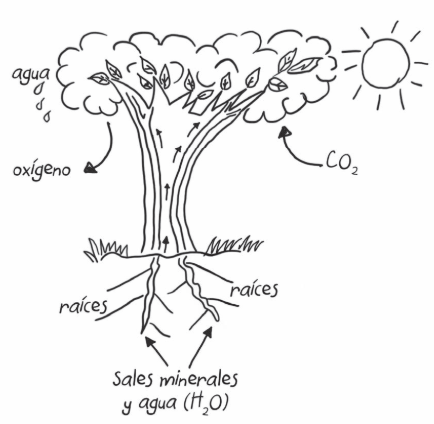 agua
oxígeno
CO₂
raíces
raíces
Sales minerales
y agua (H₂O)